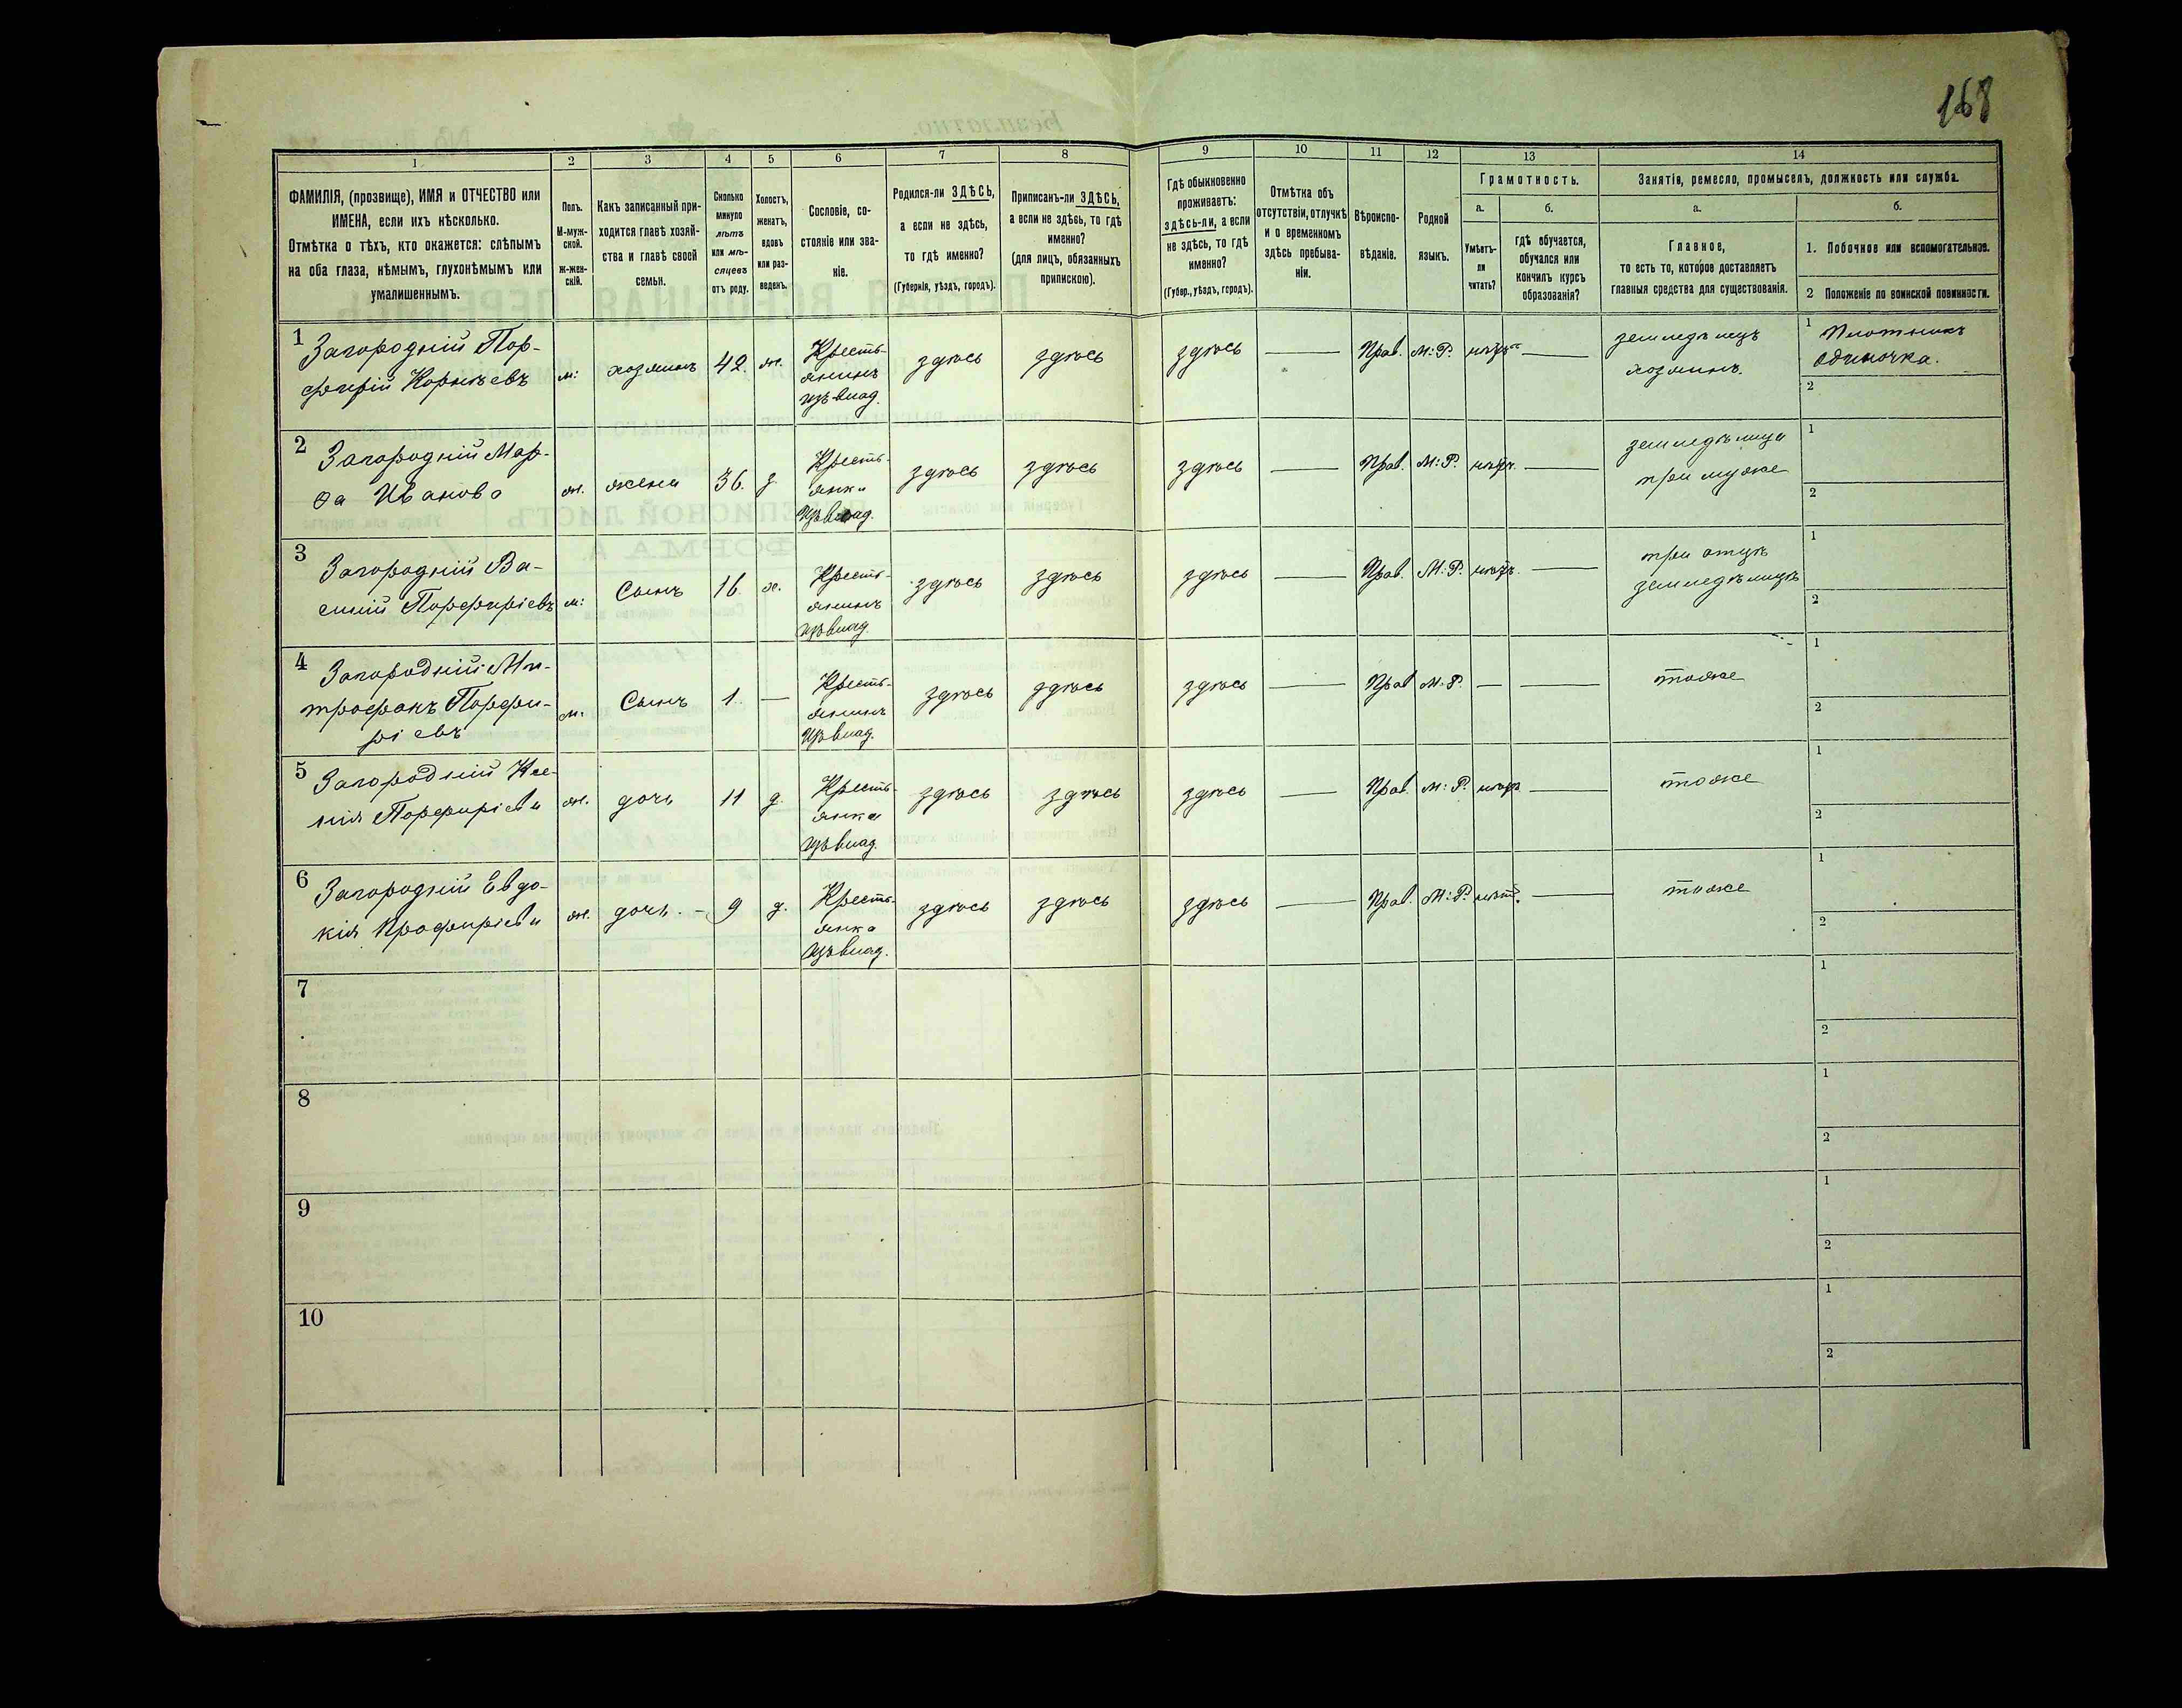 168
1 2 3 4 5 6 7 8 9 10 11 12 13 14
ФАМИЛІЯ, (прозвище), ИМЯ и ОТЧЕСТВО или
ИМЕНА, если ихъ нѣсколько.
Отмѣтка о тѣхъ, кто окажется: слѣпымъ
на оба глаза, нѣмымъ, глухонѣмымъ или
умалишеннымъ.
Полъ.
М-муж-
ской.
ж-жен-
скій.
Какъ записанный при-
ходится главѣ хозяй-
ства и главѣ своей
семьи.
Сколько
минуло
лѣтъ
или мѣ-
сяцевъ
отъ роду.
Холостъ,
женатъ,
вдовъ
или раз-
веденъ.
Сословіе, со-
стояніе или зва-
ніе.
Родился-ли ЗДѢСЬ,
а если не здѣсь,
то гдѣ именно?
(Губернія, уѣздъ, городъ).
Приписанъ-ли ЗДѢСЬ,
а если не здѣсь, то гдѣ
именно?
(для лицъ, обязанныхъ
припискою).
Гдѣ обыкновенно
проживаетъ:
здѣсь-ли, а если
не здѣсь, то гдѣ
именно?
(Губер., уѣздъ, городъ).
Отмѣтка объ
отсутствіи, отлучкѣ
и о временномъ
здѣсь пребыва-
ніи.
Вѣроиспо-
вѣданіе.
Родной
языкъ.
Грамотность.
а.
Умѣетъ-
ли
читать?
б.
гдѣ обучается,
обучался или
кончилъ курсъ
образованія?
Занятіе, ремесло, промыселъ, должность или служба.
а.
Главное,
то есть то, которое доставляетъ
главныя средства для существованія.
б.
1. Побочное или вспомогательное.
2 Положеніе по воинской повинности.
1 Загородній Пор-
фирій Корнѣевъ
м: хозяинъ 42. ж.
Кресть-
янинъ
изъ влад.
здѣсь здѣсь здѣсь — Прав. М:Р. нѣтъ —
земледѣлецъ
хозяинъ.
1 Плотникъ
одиночка.
2
2 Загородній Мар-
ѳа Иванова
ж. жена 36. з.
Кресть-
янка
Изъ влад.
здѣсь здѣсь здѣсь — Прав. М:Р. нѣтъ. —
земледѣлица
при мужѣ
1
2
3 Загородній Ва-
силій Порфиріевъ
м: Сынъ 16. х.
Кресть-
янинъ
изъ влад.
здѣсь здѣсь здѣсь — Прав. М:Р. нѣтъ. —
при отцѣ
земледѣлецъ
1
2
4 Загородній Ми-
трофанъ Порфи-
ріевъ
м. Сынъ 1. —
Кресть-
янинъ
Изъ влад.
здѣсь здѣсь здѣсь — Прав М:Р. — —
тоже
1
2
5 Загородній Ксе-
нія Порфиріева
ж. дочь 11 д.
Кресть-
янка
Изъ влад.
здѣсь здѣсь здѣсь — Прав. М:Р. нѣтъ —
тоже
1
2
6 Загородній Евдо-
кія Профиріева
ж. дочь. - 9 д.
Кресть-
янка
Изъ влад.
здѣсь здѣсь здѣсь — Прав. М:Р. нѣтъ. —
тоже
1
2
7
1
2
8
1
2
9
1
2
10
1
2